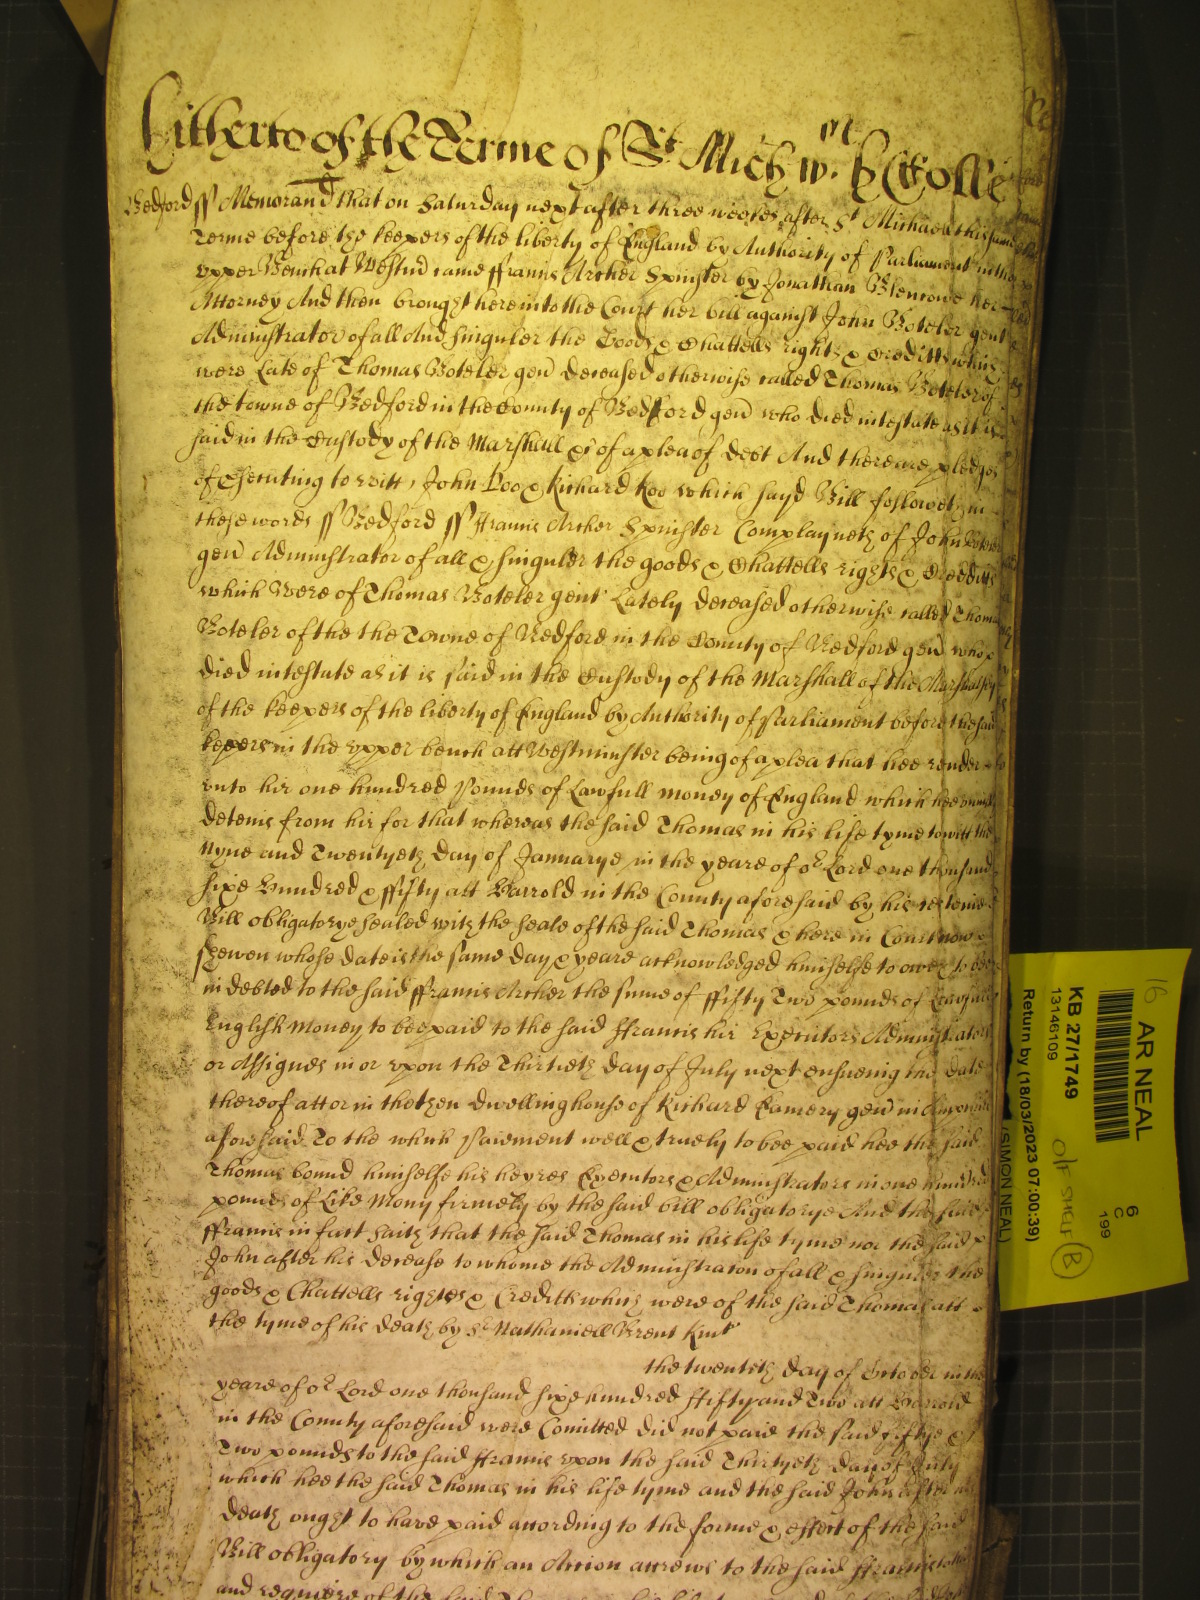 Hitherto of the Terme of St Mich wt. h Rolle
Bedford ss Memorand that on Saturday next after three weekes after St Michaell this same
Terme before the keepers of the liberty of England by Authority of Parliament in the
upper Bench at Westm came ffrancis Archer Spinster by Jonathan her
Attorney And then brought here into the Court her bill against John Boteler gent
Administrator of all And singuler the Goods & Chattells rights & Creditts which
were Late of Thomas Boteler gen deceased otherwise called Thomas Boteler of
the towne of Bedford in the County of Bedford gen who died intestate as it is
said in the Custody of the Marshall &c of a plea of debt And there are pledges
of prosecuting to witt, John Doo & Richard Roo which sayd Bill followeth in
these words ss Bedford ss ffrancis Archer Spinster Complayneth of John Boteler
gen Administrator of all & singuler the goods & Chattells rights & Creditts
which Were of Thomas Boteler gent Lately deceased otherwise called Thomas
Boteler of the the Towne of Bedford in the County of Bedford gen who
died intestate as it is said in the Custody of the Marshall of the Marshalsey
of the keepers of the liberty of England by Authority of Parliament before the said
keepers in the upper bench att Westminster being of a plea that hee render
unto hir one hundred Pounds of Lawfull money of England which hee uniustly
deteins from hir for that whereas the said Thomas in his life tyme to witt the
Nyne and Twentyeth day of Januarye in the yeare of or Lord one thousand
sixe hundred & ffifty att Harrold in the County aforesaid by his certeine
Bill obligatorye sealed with the seale of the said Thomas & here in Court now
shewen whose date is the same day & yeare acknowledged himselfe to owe & to bee
indebted to the said ffrancis Archer the sume of ffifty Two pounds of Lawfull
English Money to bee paid to the said ffrancis hir Executors Administrators
or Assignes in or upon the Thirtieth day of July next ensueing the date
thereof att or in the then dwelling house of Richard gen in
aforesaid To the which Paiement well & truely to bee paid hee the said
Thomas bound himselfe his heyres Executors & Administrators in one hundred
pounds of Like Mony firmely by the said bill obligatorye And the said
ffrancis in fact saith that the said Thomas in his life tyme nor the said
John after his decease to whome the Administration of all & singuler the
goods & Chattells rightes & Creditts which were of the said Thomas att
the tyme of his death by Sr Nathaniell Brent Knt
the twenteth day of October in the
yeare of or Lord one thousand sixe hundred ffifty and Two att Harrold
in the County aforesaid were Comitted did not paie the said fiftye &
Two pounds to the said ffrancis upon the said Thirtyeth day of July
which hee the said Thomas in his life tyme and the said John after his
death ought to have paid according to the forme & effect of the said
Bill obligatory by which an Accion accrews to the said ffrancis to have
and require of the said
16
AR NEAL
6
C
199
KB 27/1749
13146109
O/F SHELF B
Return by (18/03/2023 07:00:39)
(SIMON NEAL)